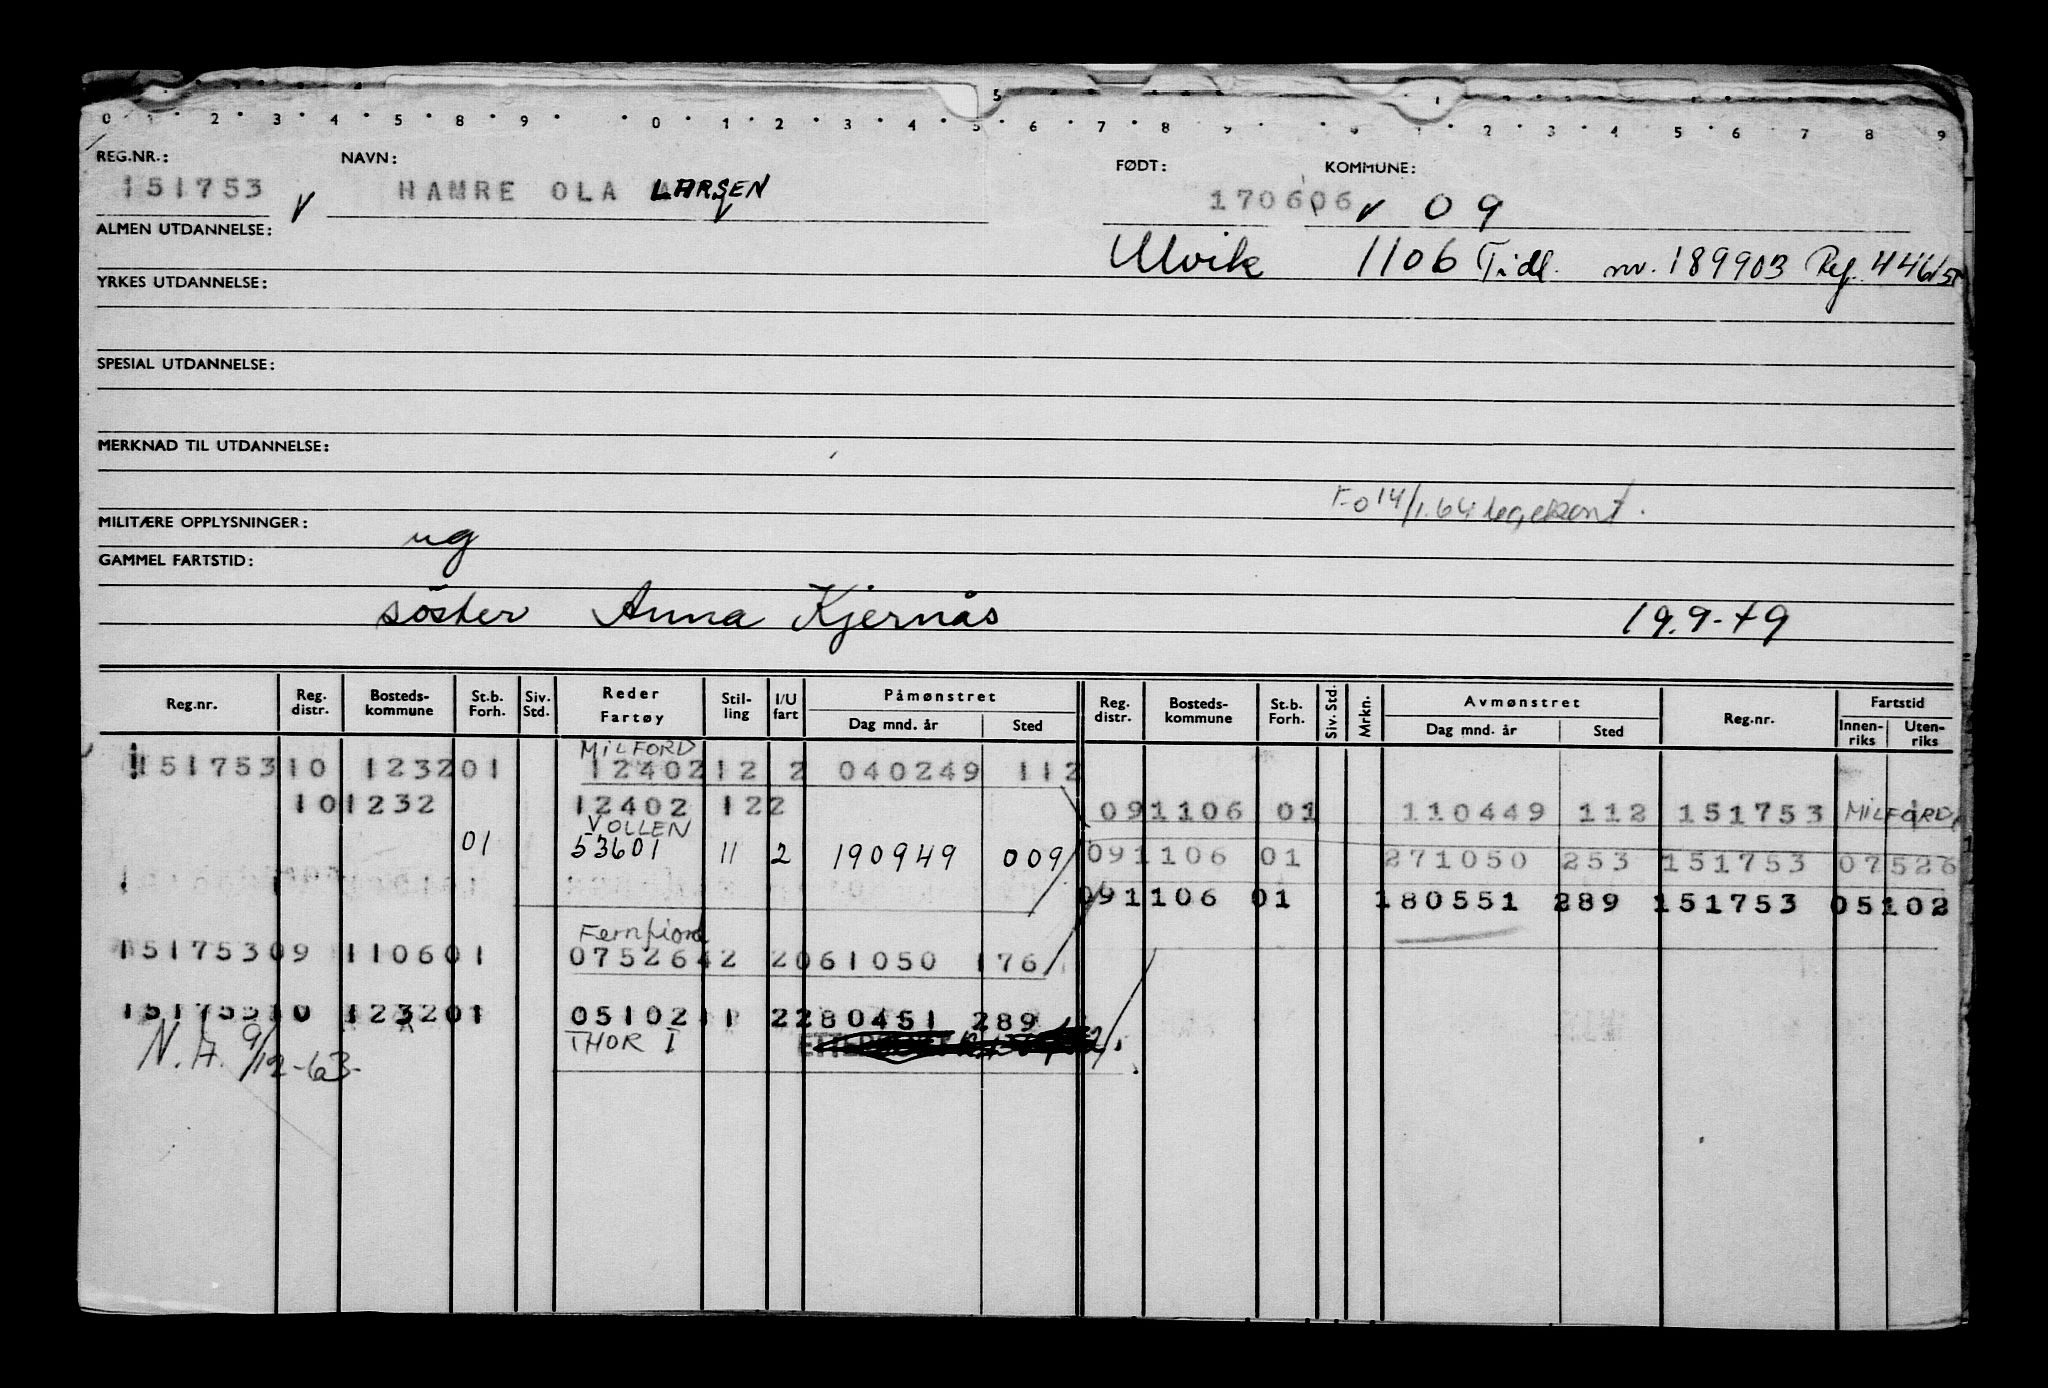 0 1 2 3 4 5 6 7 8 9 0 1 2 3 4 5 6 7 8 9 0 1 2 3 4 5 6 7 8 9
REG.NR.: NAVN: FØDT: KOMMUNE:
151753 HAMRE OLA LARSEN 170606 09
ALMEN UTDANNELSE:
Ulvik 1106 Tidl. nr. 189903 Ref. 446/51
YRKES UTDANNELSE:
SPESIAL UTDANNELSE:
MERKNAD TIL UTDANNELSE:
14/1.64 legekont.
MILITÆRE OPPLYSNINGER:
ug
GAMMEL FARTSTID:
söster Anna Kjernås 19.9-49
Reg.nr. Reg. distr. Bosteds-kommune St.b. Forh. Siv. Std. Reder Fartøy Stil-ling I/U fart Påmønstret Dag mnd. år Sted Reg. distr. Bosteds-kommune St.b. Forh. Siv. Std. Mrkn. Avmønstret Dag mnd. år Sted Reg.nr. Fartstid Innen-riks Uten-riks
MILFORD
151753 10 1232 01 12402 12 2 040249 112
10 1232 12402 12 2 09 1106 01 110449 112 151753 MILFORD
VOLLEN
01 53601 11 2 190949 009 09 1106 01 271050 253 151753 07526
09 1106 01 180551 289 151753 05102
Fernfiord
151753 09 1106 01 07526 42 2 061050 176
151753 10 1232 01 05102 11 2 280451 289
THOR I
N.A. 9/12-63-